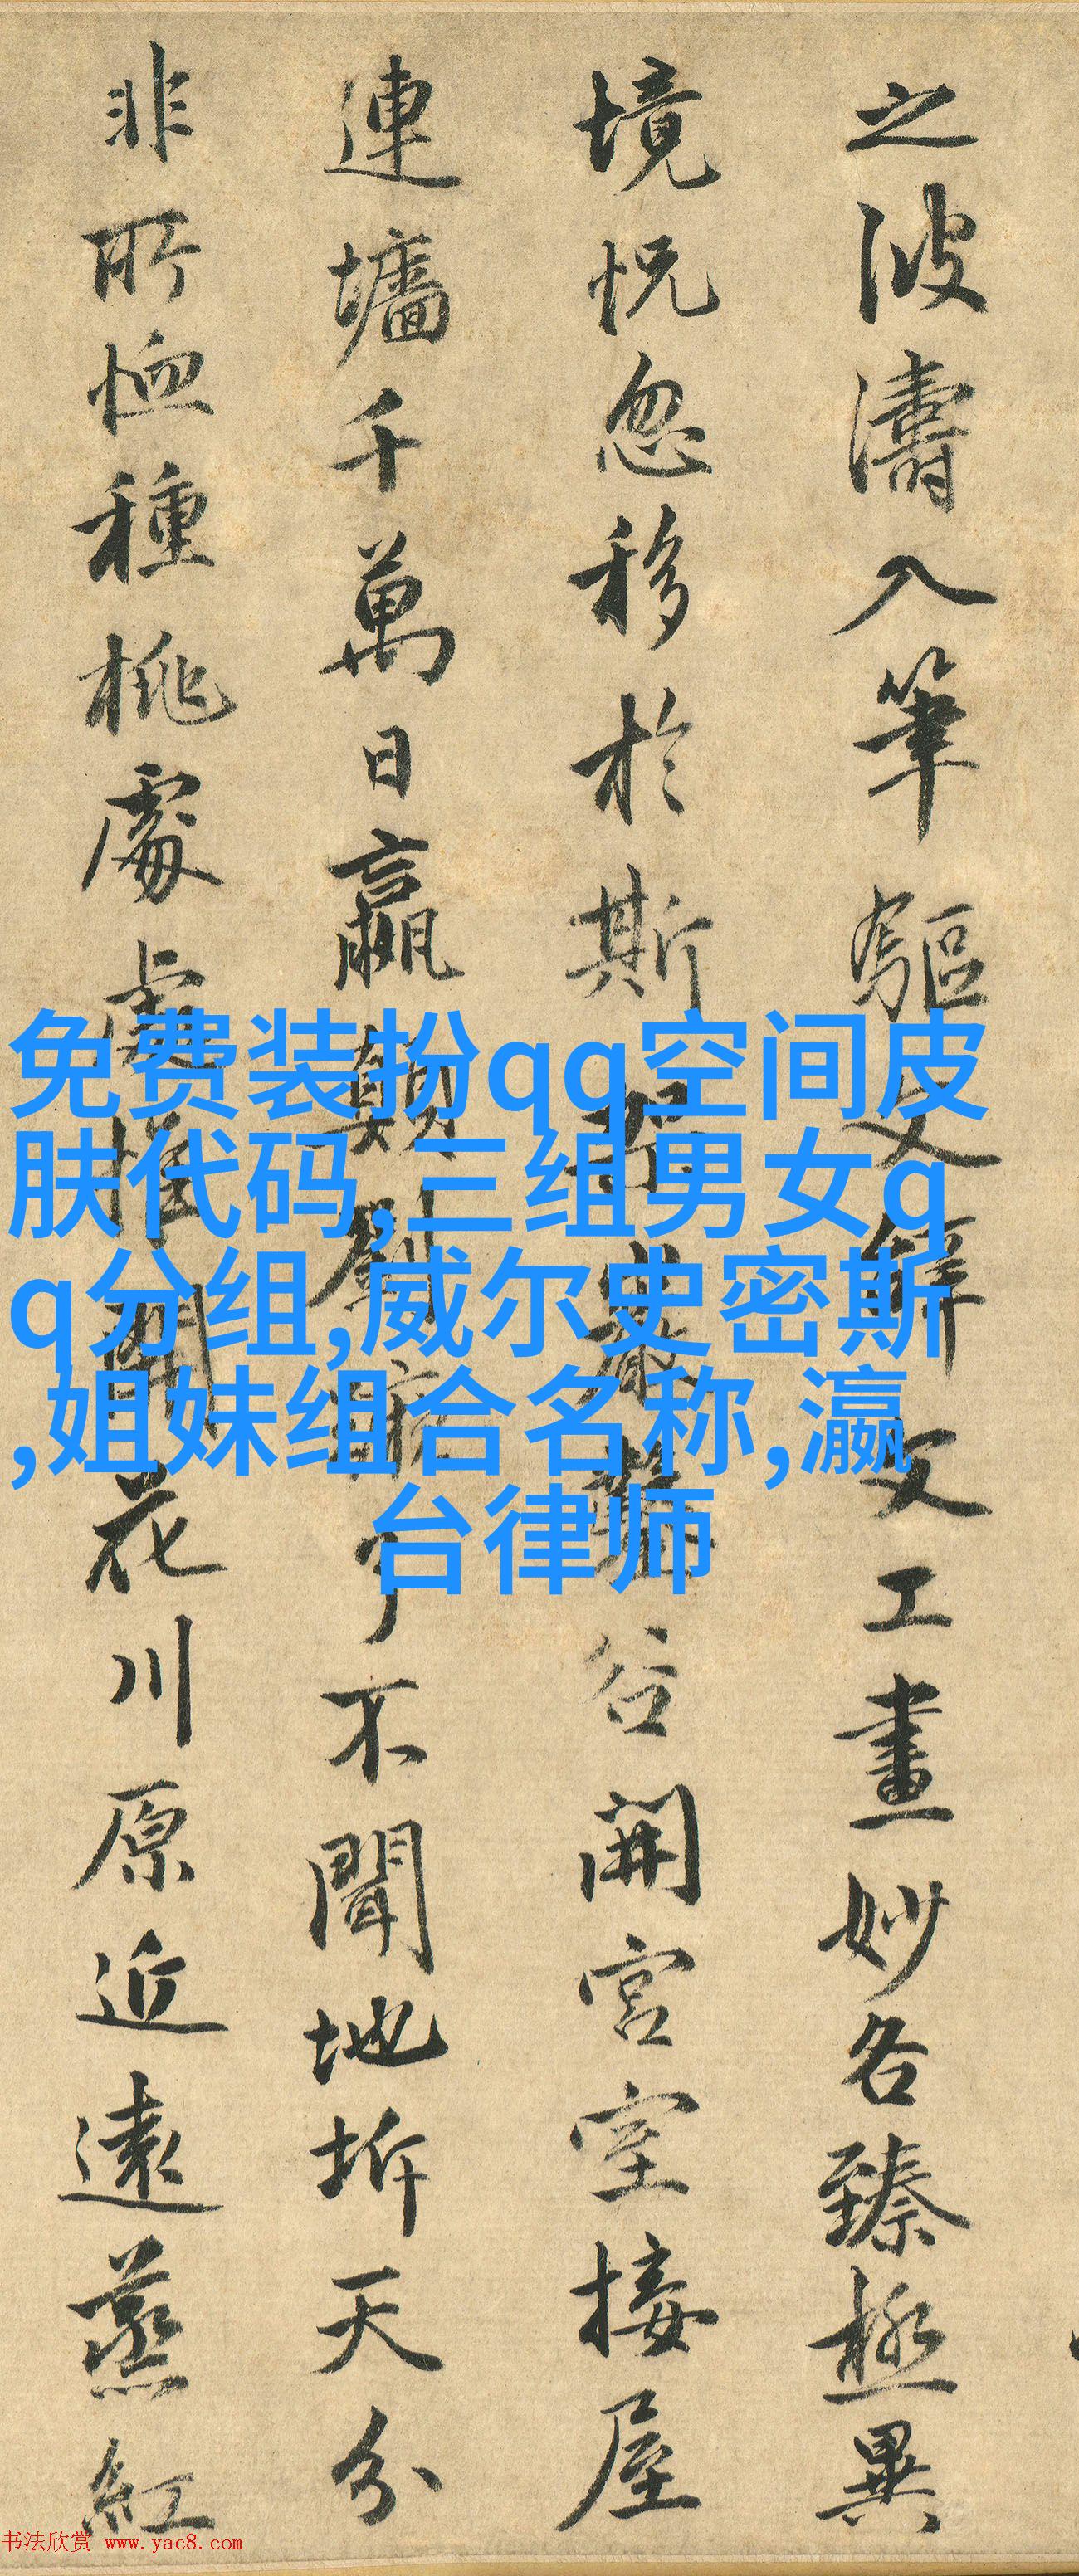 之波濤入筆驅文辭文工畫妙各臻極異
境怳忽移於斯架巖鑿谷開宮室接屋
連墻千萬日嬴顛劉蹶了不聞地坼天分
非所恤種桃處處惟開花川原近遠蒸紅
免费装扮qq空间皮
肤代码,三组男女q
q分组,威尔史密斯
,姐妹组合名称,瀛
台律师
书法欣赏 www.yac8.com